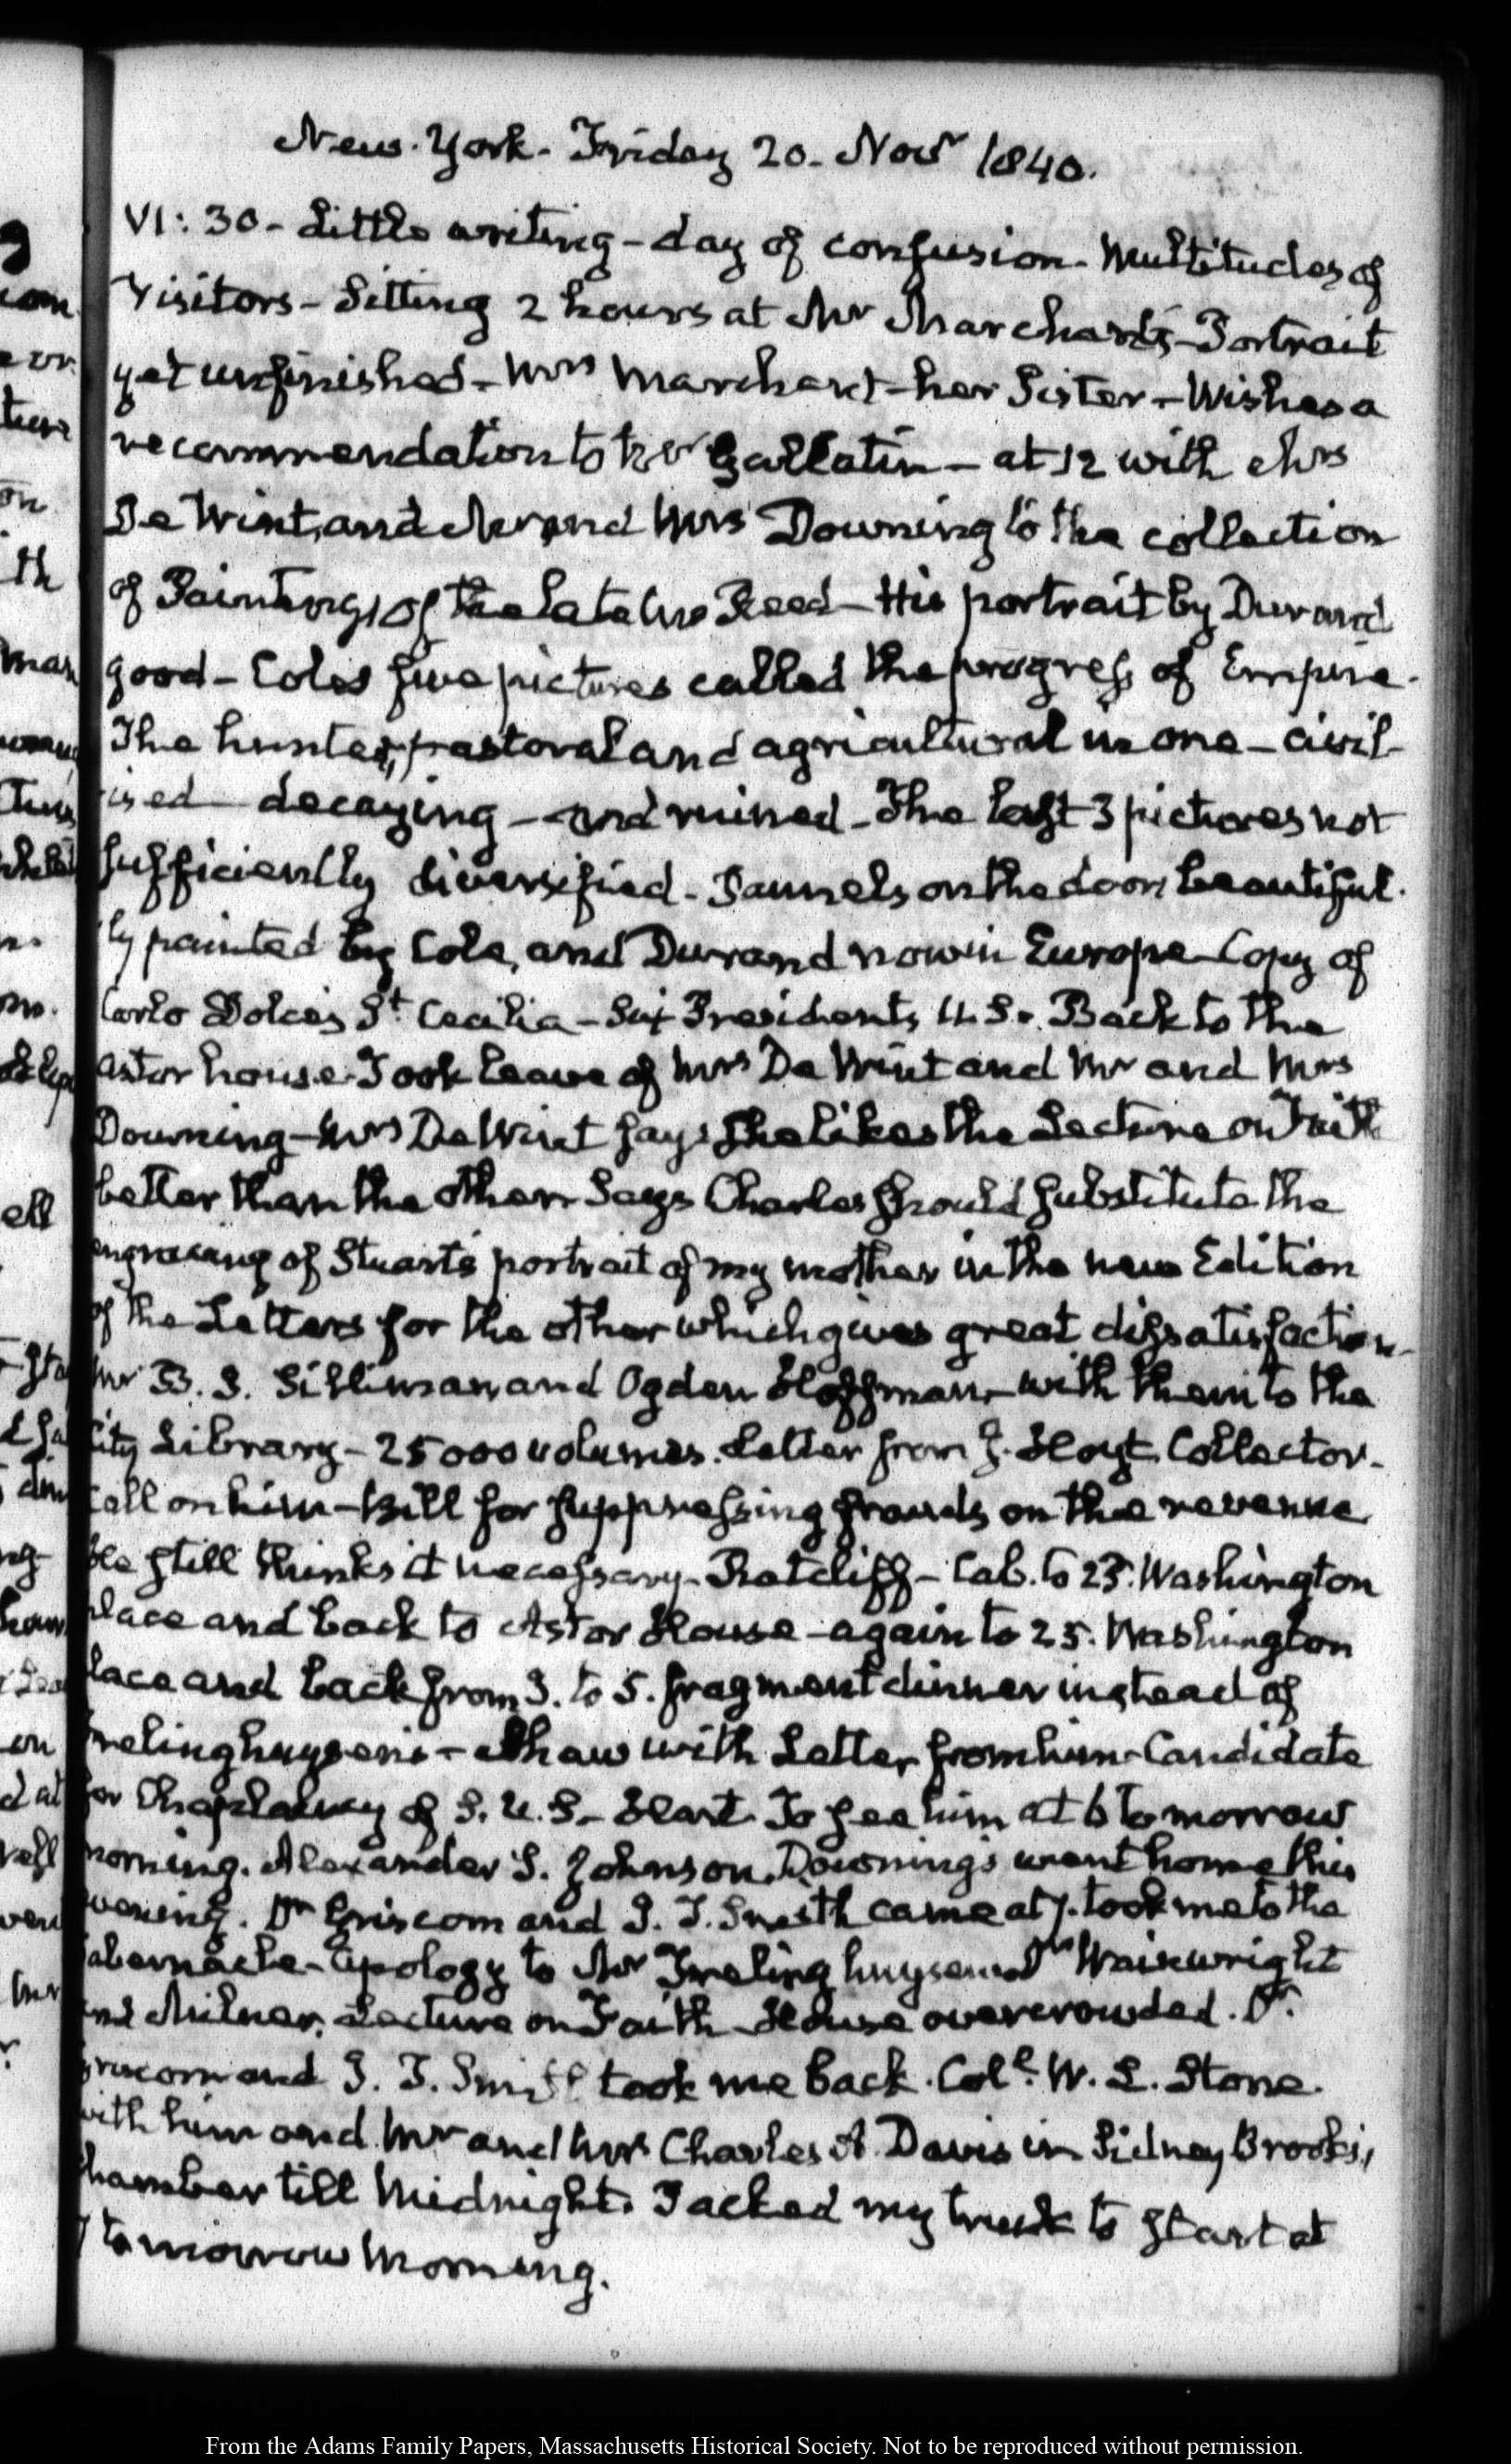 New-York- Friday 20. Novr 1840.
VI: 30- Little writing - day of confusion- Multitudes of
Visitors - Sitting 2 hours at Mr Marchant's- Portrait
yet unfinished - Mrs Marchant - her Sister - Wishes a
recommendation to Mr Gallatin - at 12 with Mrs
De Wint, and Mr and Mrs Downing to the collection
of Paintings of the late Mr Reed - His portrait by Durand
good - Coles five pictures called the progress of Empire.
The hunter, pastoral and agricultural in one - civil-
ised decaying - and ruined - The last 3 pictures not
sufficiently diversified - Pannels on the doors beautiful-
ly painted by Cole, and Durand now in Europe - Copy of
Carlo Dolces St Cecilia - Six Presidents U.S. Back to the
Astor house. Took leave of Mrs De Wint and Mr and Mrs
Downing - Mrs De Wint says she likes the Lecture on Faith
better than the other. Says Charles should substitute the
engraving of Stuart's portrait of my mother in the new Edition
of the Letters for the other which gives great dissatisfaction-
Mr B. D. Silliman and Ogden Hoffman - with them to the
City Library - 25000 volumes. Letter from J. Hoyt Collector-
Call on him - Bill for suppressing frauds on the revenue
He still thinks it necessary - Ratcliff - Cab. to 25. Washington
place and back to Astor House - again to 25. Washington
place and back from 3. to 5. fragment dinner instead of
Frelinghuysen's - with Letter from him - Candidate
for Chaplaincy of S. U. S. - Hart. To see him at 6 tomorrow
morning. Alexander S. Johnson. Downings went home this
evening. Dr Griscom and J. T. Smith came at 7. took me to the
Tabernacle - Apology to Mr Frelinghuysen Drs Wainwright
and Milnor. Lecture on Faith - House overcrowded. Dr.
Griscom and J. T. Smith took me back. Coll. W. L. Stone.
with him and Mr and Mrs Charles A. Davis in Sidney Brooks's
chamber till Midnight. Packed my trunk to start at
7 tomorrow Morning.
From the Adams Family Papers, Massachusetts Historical Society. Not to be reproduced without permission.